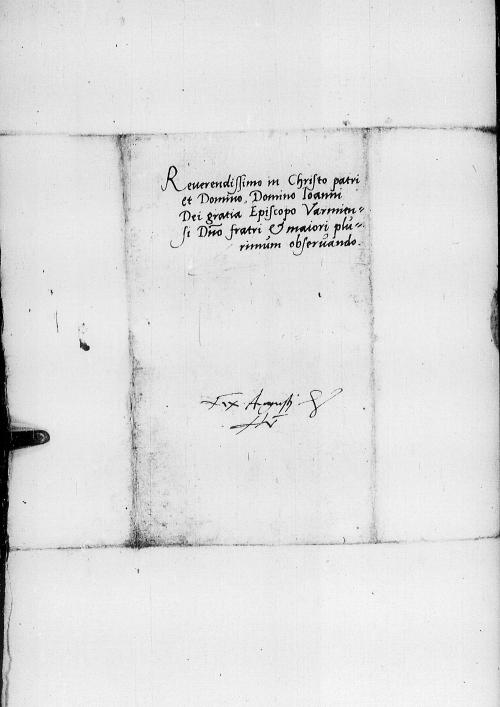 Reverendissimo in Christo patri
et Domino, Domino Ioanni
Dei gratia Episcopo Varmien=
si Dno fratri & maiori plu=
rimum observando.
Augusti